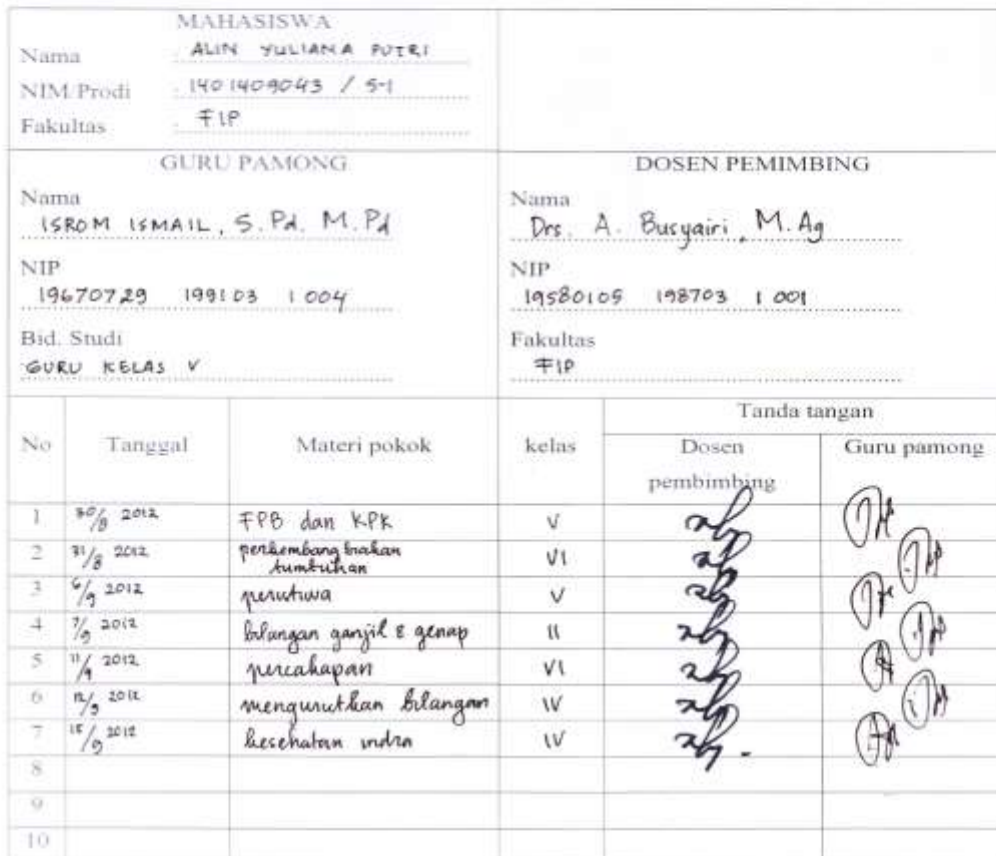 MAHASISWA
Nama : ALIN YULIANA PUTRI
NIM/Prodi : 1401409043 / S-1
Fakultas : FIP
GURU PAMONG
Nama
ISROM ISMAIL, S.Pd. M.Pd
NIP
19670729 199103 1 004
Bid. Studi
GURU KELAS V
DOSEN PEMIMBING
Nama
Drs. A. Busyairi, M.Ag
NIP
19580105 198703 1 001
Fakultas
FIP
No Tanggal Materi pokok kelas Tanda tangan
Dosen pembimbing Guru pamong
1 30/8 2012 FPB dan KPK V
2 31/8 2012 perkembangbiakan tumbuhan VI
3 6/9 2012 peristiwa V
4 7/9 2012 bilangan ganjil & genap II
5 11/9 2012 percakapan VI
6 12/9 2012 mengurutkan bilangan IV
7 15/9 2012 kesehatan indra IV
8
9
10